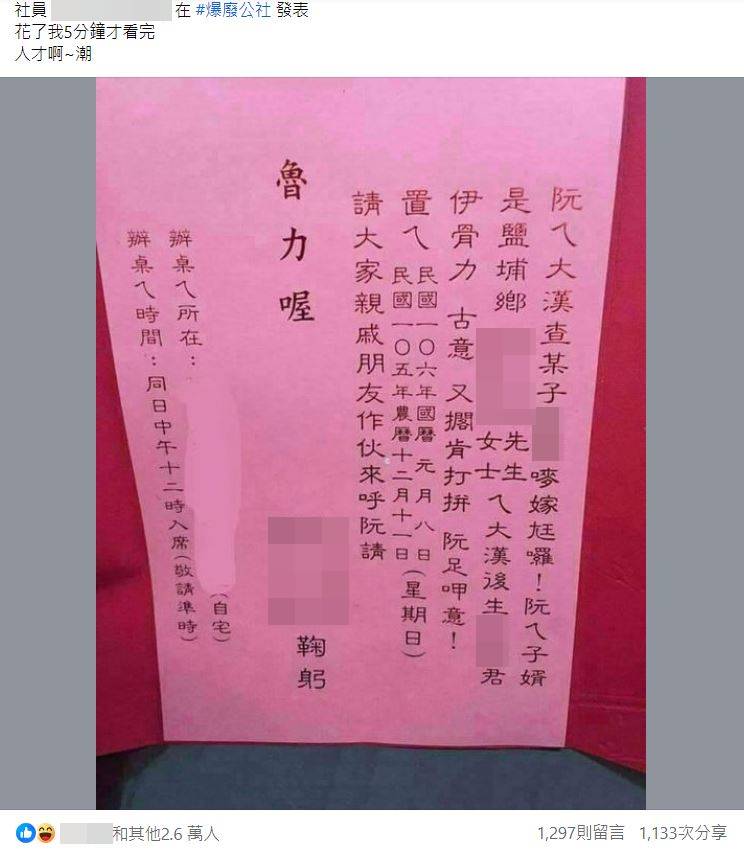 社員 在 #爆廢公社 發表
花了我5分鐘才看完
人才啊~潮
阮ㄟ大漢查某子 嘜嫁尪囉！阮ㄟ子婿
是鹽埔鄉 先生 女士 ㄟ大漢後生 君
伊骨力 古意 又擱肯打拼 阮足呷意！
置ㄟ 民國一〇六年國曆元月八日 民國一〇五年農曆十二月十一日 (星期日)
請大家親戚朋友作伙來呼阮請
魯力喔
鞠躬
辦桌ㄟ所在： (自宅)
辦桌ㄟ時間：同日中午十二時入席(敬請準時)
和其他2.6 萬人
1,297則留言 1,133次分享